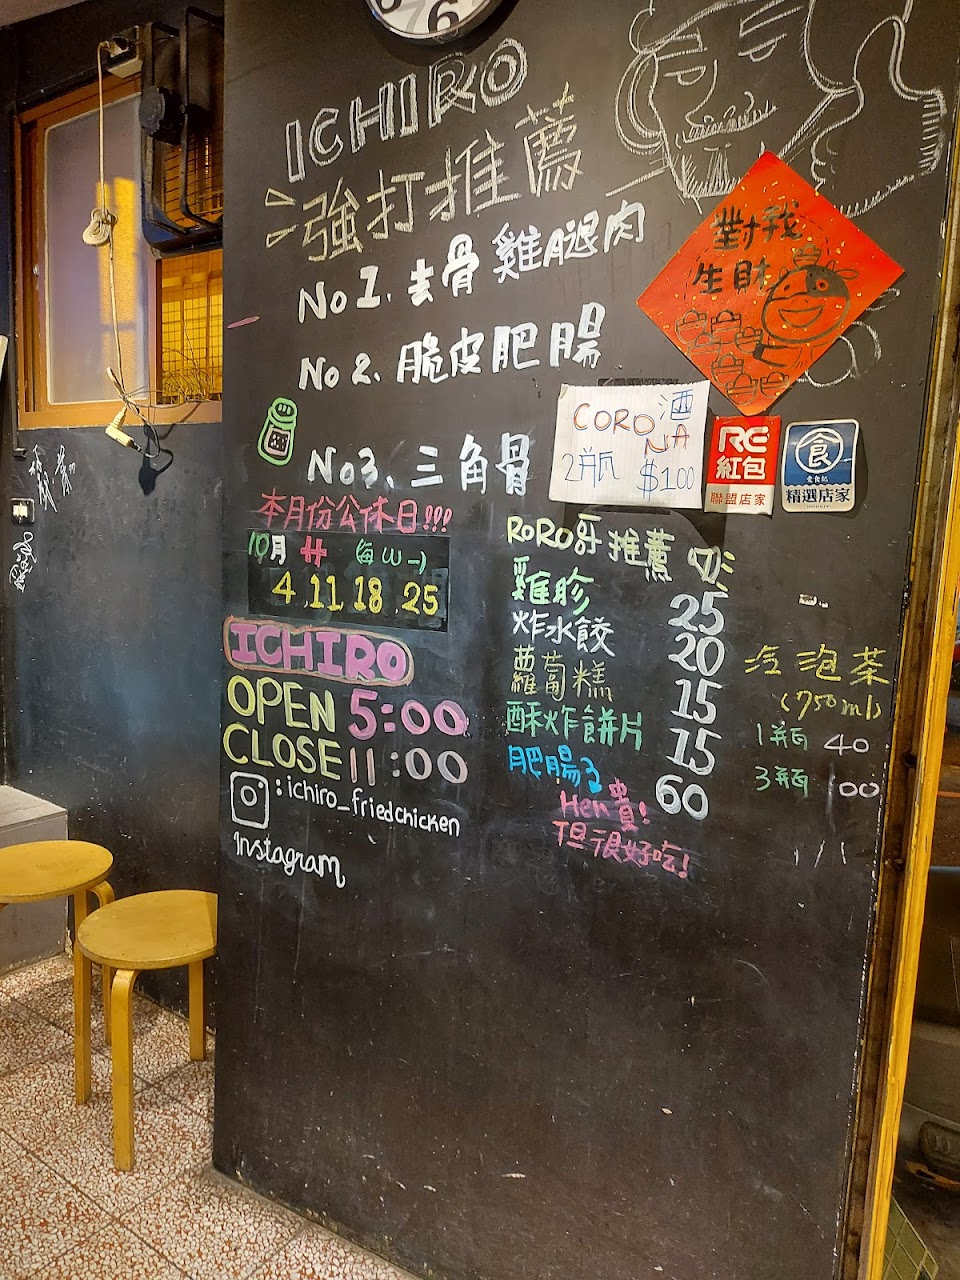 ICHIRO
強打推薦
No 1. 去骨雞腿肉
No 2. 脆皮肥腸
No3. 三角骨
對我
生財
CORONA 酒
2瓶 $100
RE
紅包
聯盟店家
食
愛食記
精選店家
本月份公休日!!!
10月 (每W一)
4.11.18.25
ICHIRO
OPEN 5:00
CLOSE 11:00
: ichiro_friedchicken
Instagram
RORO哥推薦
雞胗 25
炸水餃 20
蘿蔔糕 15
酥炸餅片 15
肥腸 60
Hen貴!
但很好吃!
汽泡茶
(750ml)
1瓶 40
3瓶 100